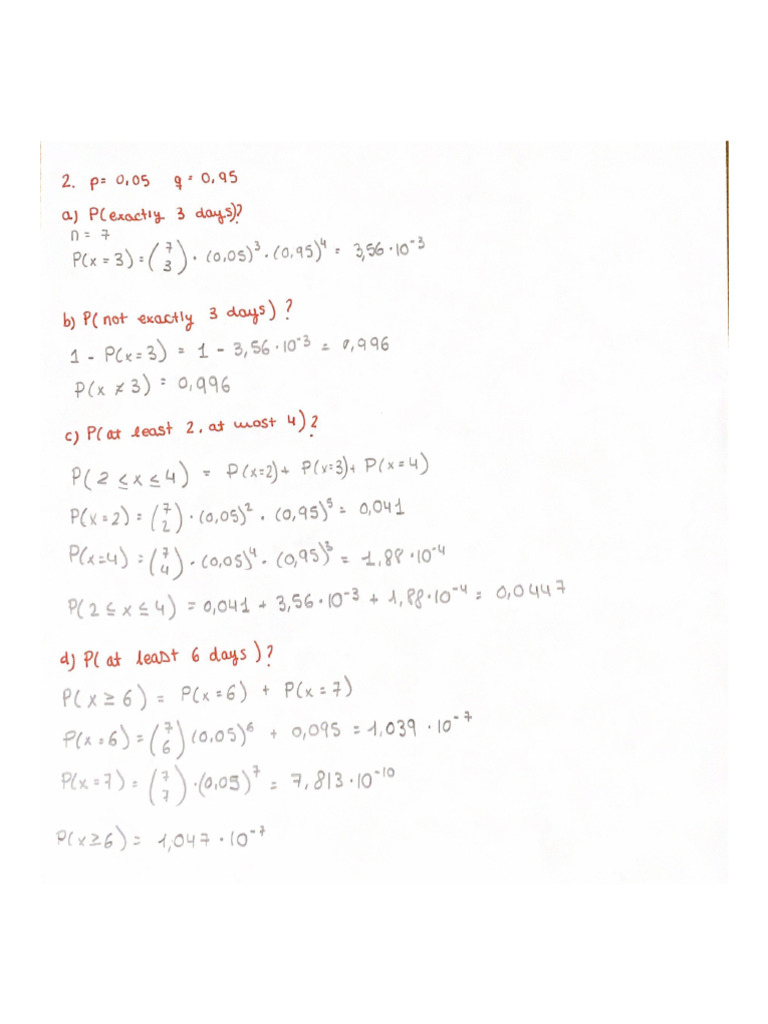 2. p= 0,05 q = 0,95
a) P(exactly 3 days)?
n = 7
P(x = 3) = (7 3) · (0,05)³ · (0,95)⁴ = 3,56 · 10⁻³
b) P( not exactly 3 days) ?
1 - P(x = 3) = 1 - 3,56 · 10⁻³ = 0,996
P(x ≠ 3) = 0,996
c) P( at least 2, at most 4) ?
P( 2 ≤ x ≤ 4) = P(x=2) + P(x=3) + P(x = 4)
P(x = 2) = (7 2) · (0,05)² · (0,95)⁵ = 0,041
P(x=4) = (7 4) · (0,05)⁴ · (0,95)³ = 1,88 · 10⁻⁴
P( 2 ≤ x ≤ 4) = 0,041 + 3,56 · 10⁻³ + 1,88 · 10⁻⁴ = 0,0447
d) P( at least 6 days ) ?
P( x ≥ 6) = P(x = 6) + P(x = 7)
P(x = 6) = (7 6) (0,05)⁶ + 0,095 = 1,039 · 10⁻⁷
P(x = 7) = (7 7) · (0,05)⁷ = 7,813 · 10⁻¹⁰
P( x ≥ 6) = 1,047 · 10⁻⁷